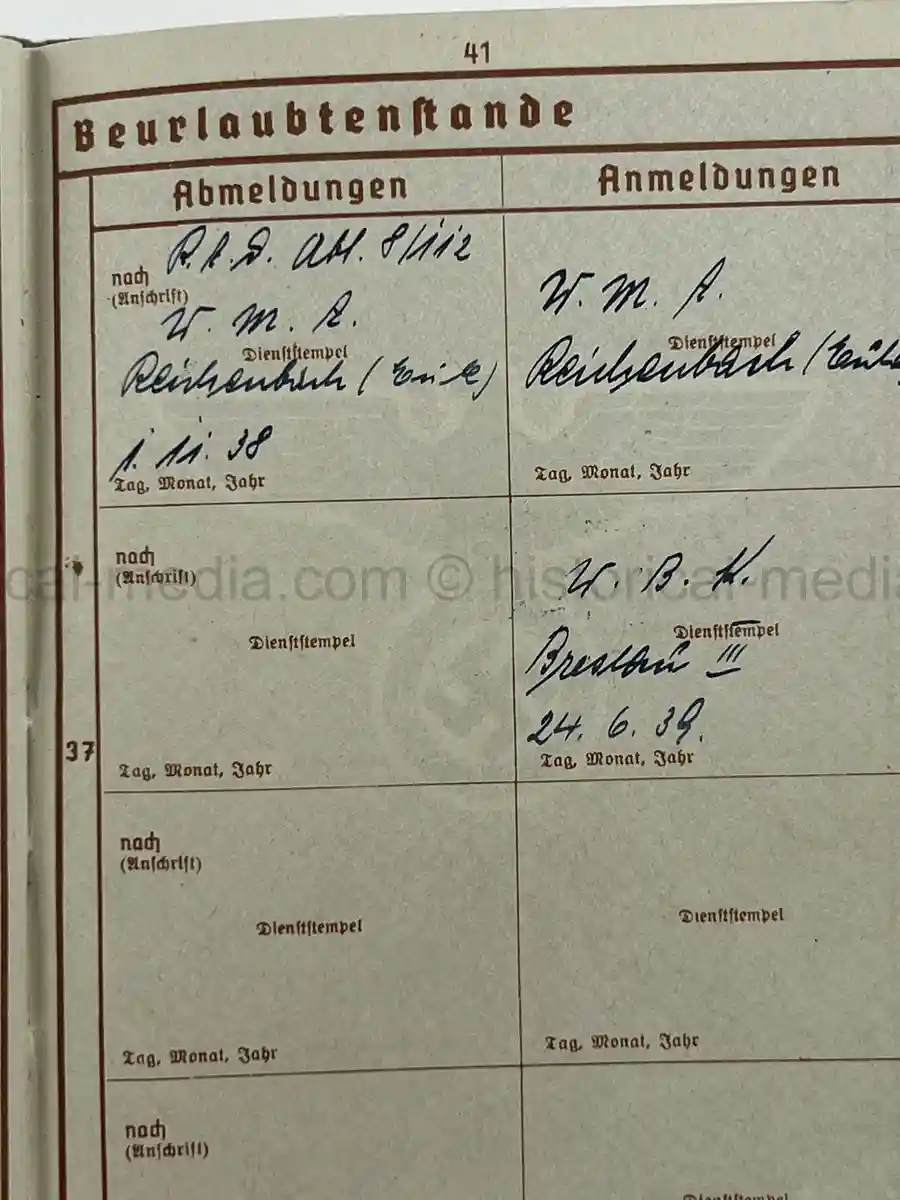 41
Beurlaubtenstande
Abmeldungen
Anmeldungen
R.A.D. Abt. 8/112
nach
(Anschrift)
W. M. A.
Dienststempel
Reichenbach (Eule)
1. 11. 38
Tag, Monat, Jahr
W. M. A.
Dienststempel
Reichenbach (Eule
Tag, Monat, Jahr
37
nach
(Anschrift)
Dienststempel
Tag, Monat, Jahr
W. B. K.
Dienststempel
Breslau III
24. 6. 39.
Tag, Monat, Jahr
nach
(Anschrift)
Dienststempel
Tag, Monat, Jahr
Dienststempel
Tag, Monat, Jahr
nach
(Anschrift)
Dienststempel
cal-media.com © historical-media